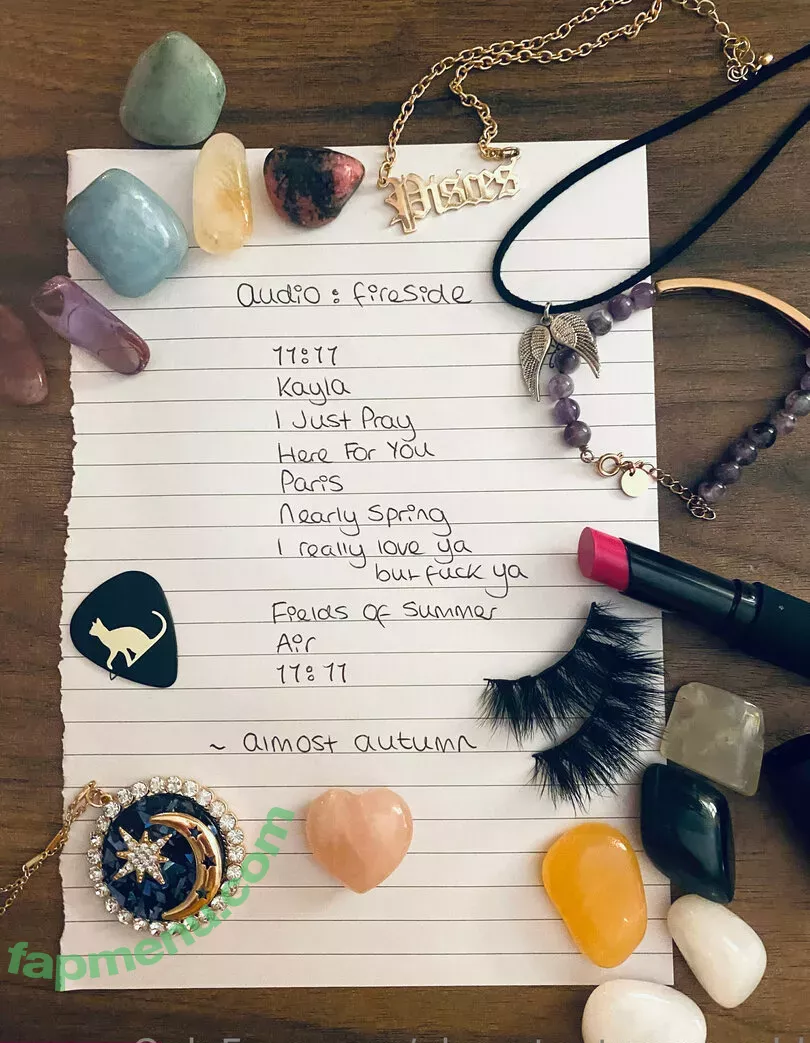 Pisces
audio : fireside
11:11
Kayla
I Just Pray
Here For You
Paris
Nearly Spring
I really love ya
but fuck ya
Fields of Summer
Air
11:11
~ almost autumn
fapmenu.com